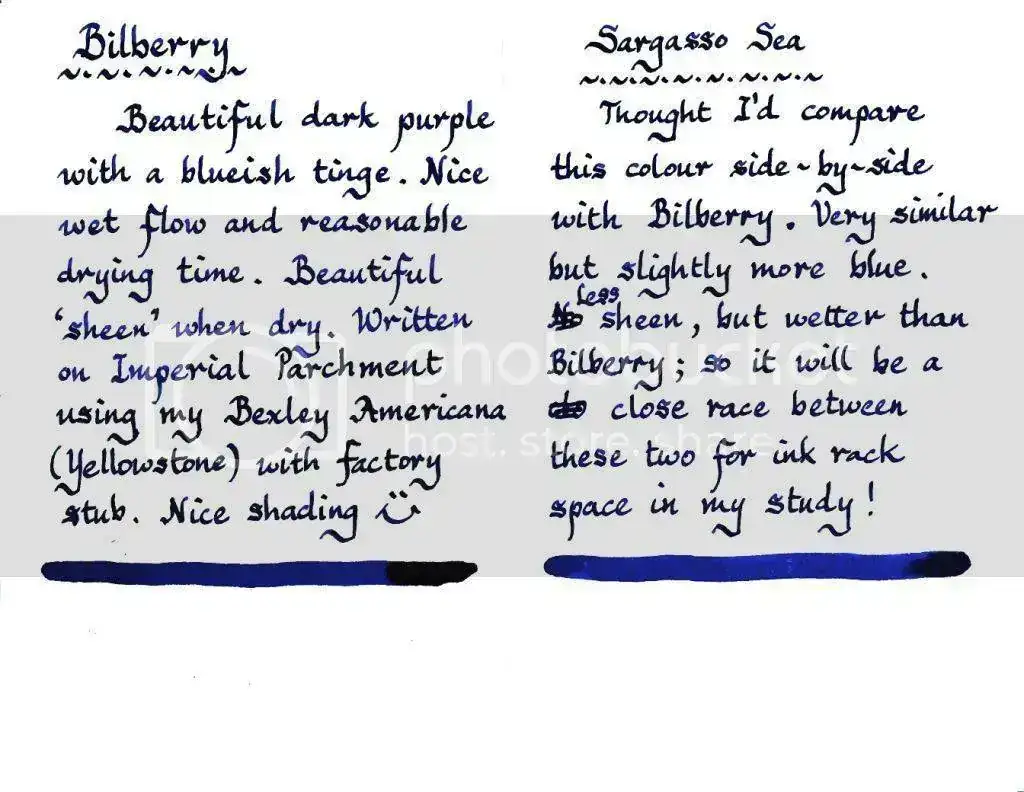 Bilberry
Beautiful dark purple
with a blueish tinge. Nice
wet flow and reasonable
drying time. Beautiful
'sheen' when dry. Written
on Imperial Parchment
using my Bexley Americana
(Yellowstone) with factory
stub. Nice shading
Sargasso Sea
Thought I'd compare
this colour side-by-side
with Bilberry. Very similar
but slightly more blue.
Less
sheen, but wetter than
Bilberry; so it will be a
close race between
these two for ink rack
space in my study!
photobucket
host. store. share.